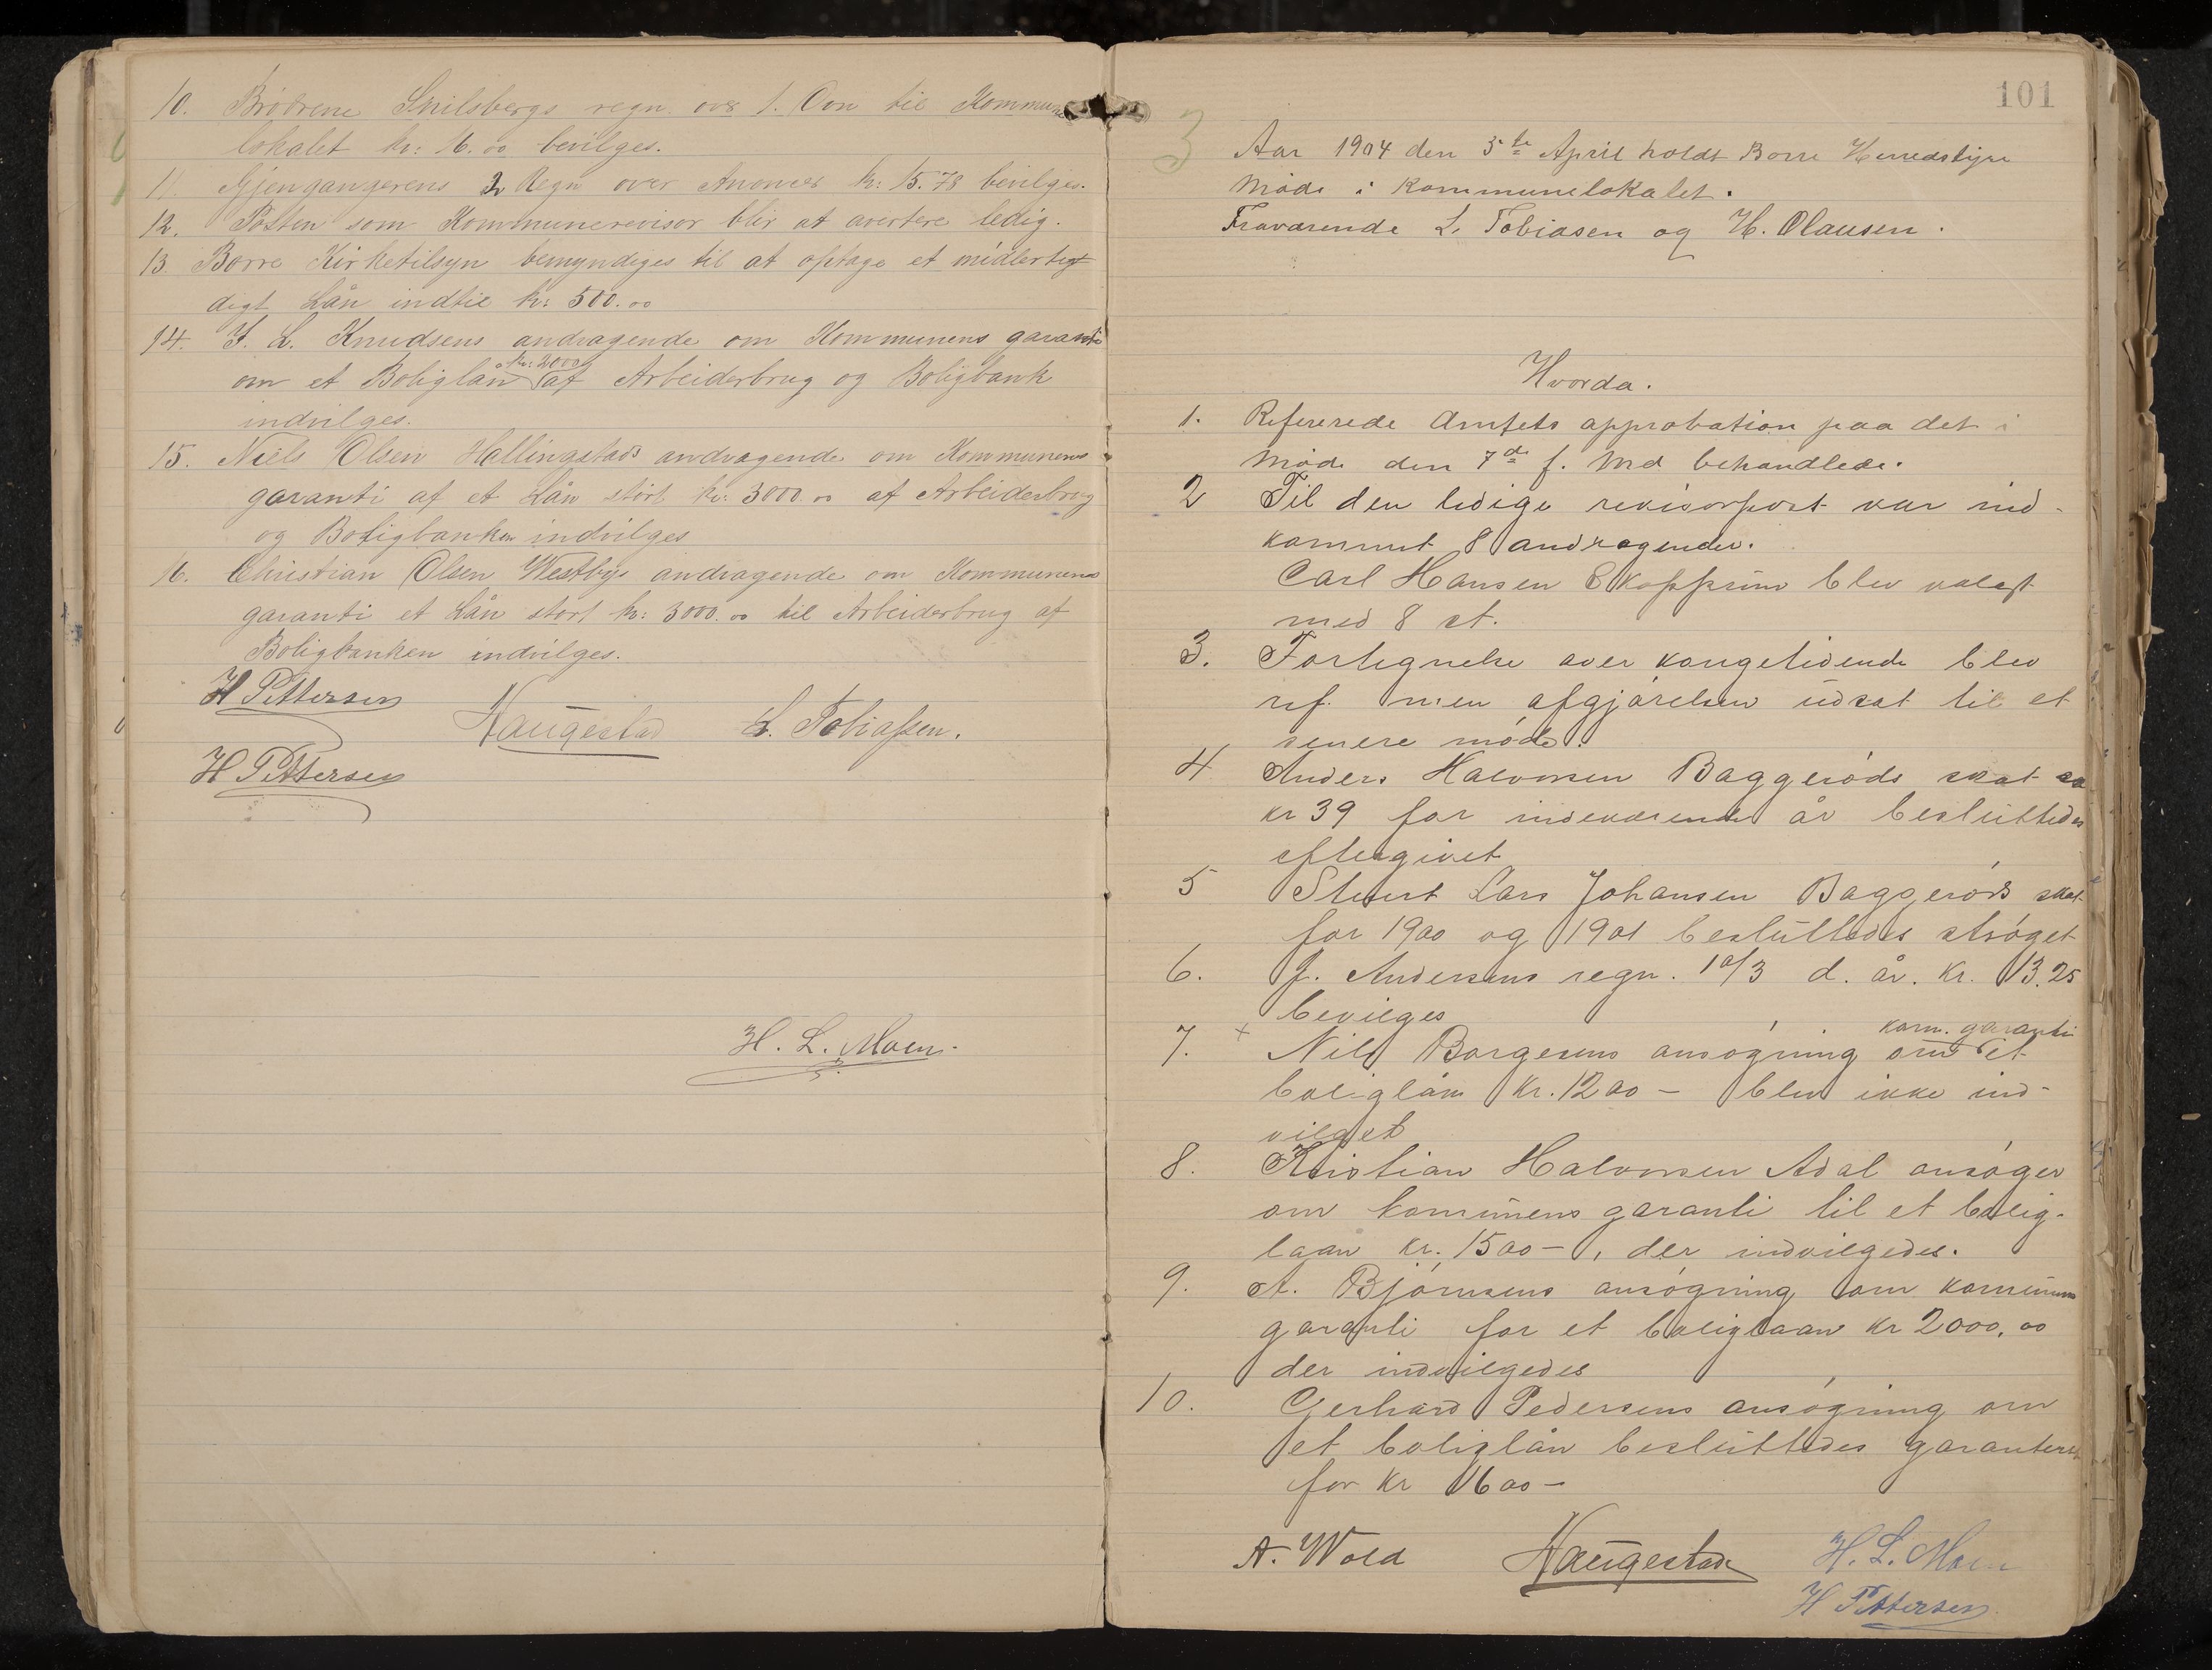 10. Brødrene Snilsbergs regn. over 1. Ovn til Kommune
lokalet kr: 16.00 bevilges.
11. Gjengangerens 2 Regn over Anoncer kr: 15.78 bevilges.
12. Posten som Kommunerevisor blir at avertere ledig.
13 Borre Kirketilsyn bemyndiges til at optage et midlertig
digt Lån indtil kr: 500.00
14. J. L. Knudsens andragende om Kommunens garanti
om et Boliglån kr: 2000 af Arbeiderbrug og Boligbank
indvilges.
15. Niels Olsen Hallingstads andragende om Kommunens
garanti af et Lån stort kr: 3000.00 af Arbeiderbrug
og Boligbanken indvilges
16. Christian Olsen Westbys andragende om Kommunens
garanti et Lån stort kr: 3000.00 til Arbeiderbrug af
Boligbanken indvilges.
H Pettersen
Haugestad L. Tobiassen.
H Pettersen
H. L. Moen.
101
3
Aar 1904 den 5te April holdt Borre Herredstyre
møde i Kommunelokalet.
Fraværende L. Tobiasen og H. Olausen.
Hvorda.
1. Refererede Amtets approbation paa det i
møde den 7de f. Md behandlede.
2 Til den ledige revisorpost var ind-
kommet 8 andragender.
Carl Hansen blev valgt
med 8 st.
3. Fortegnelse over blev
ref. men afgjørelsen udsat til et
senere møde.
4 Anders Halvorsen Baggerøds skat
kr 39 for indeværende år besluttedes
eftergivet
5 Lars Johansen Baggerøds skat
for 1900 og 1901 besluttedes strøget
6. J. Andersens regn. 10/3 d. år. kr. 13.25
bevilges
7. + Nils Borgesens ansøgning om kom. garanti et
boliglån kr. 1200 – blev ikke ind-
vilget
8. Kristian Halvorsen Adal ansøger
om kommunens garanti til et bolig-
laan kr. 1500 –, der indvilgedes.
9. A. Bjørnsens ansøgning om kommunens
garanti for et boliglaan kr 2000,00
der indvilgedes
10. Gerhard Pedersens ansøgning om
et boliglån besluttedes garanteret
for kr 1600 –
A. Wold Haugestad H. L. Moen
H Pettersen